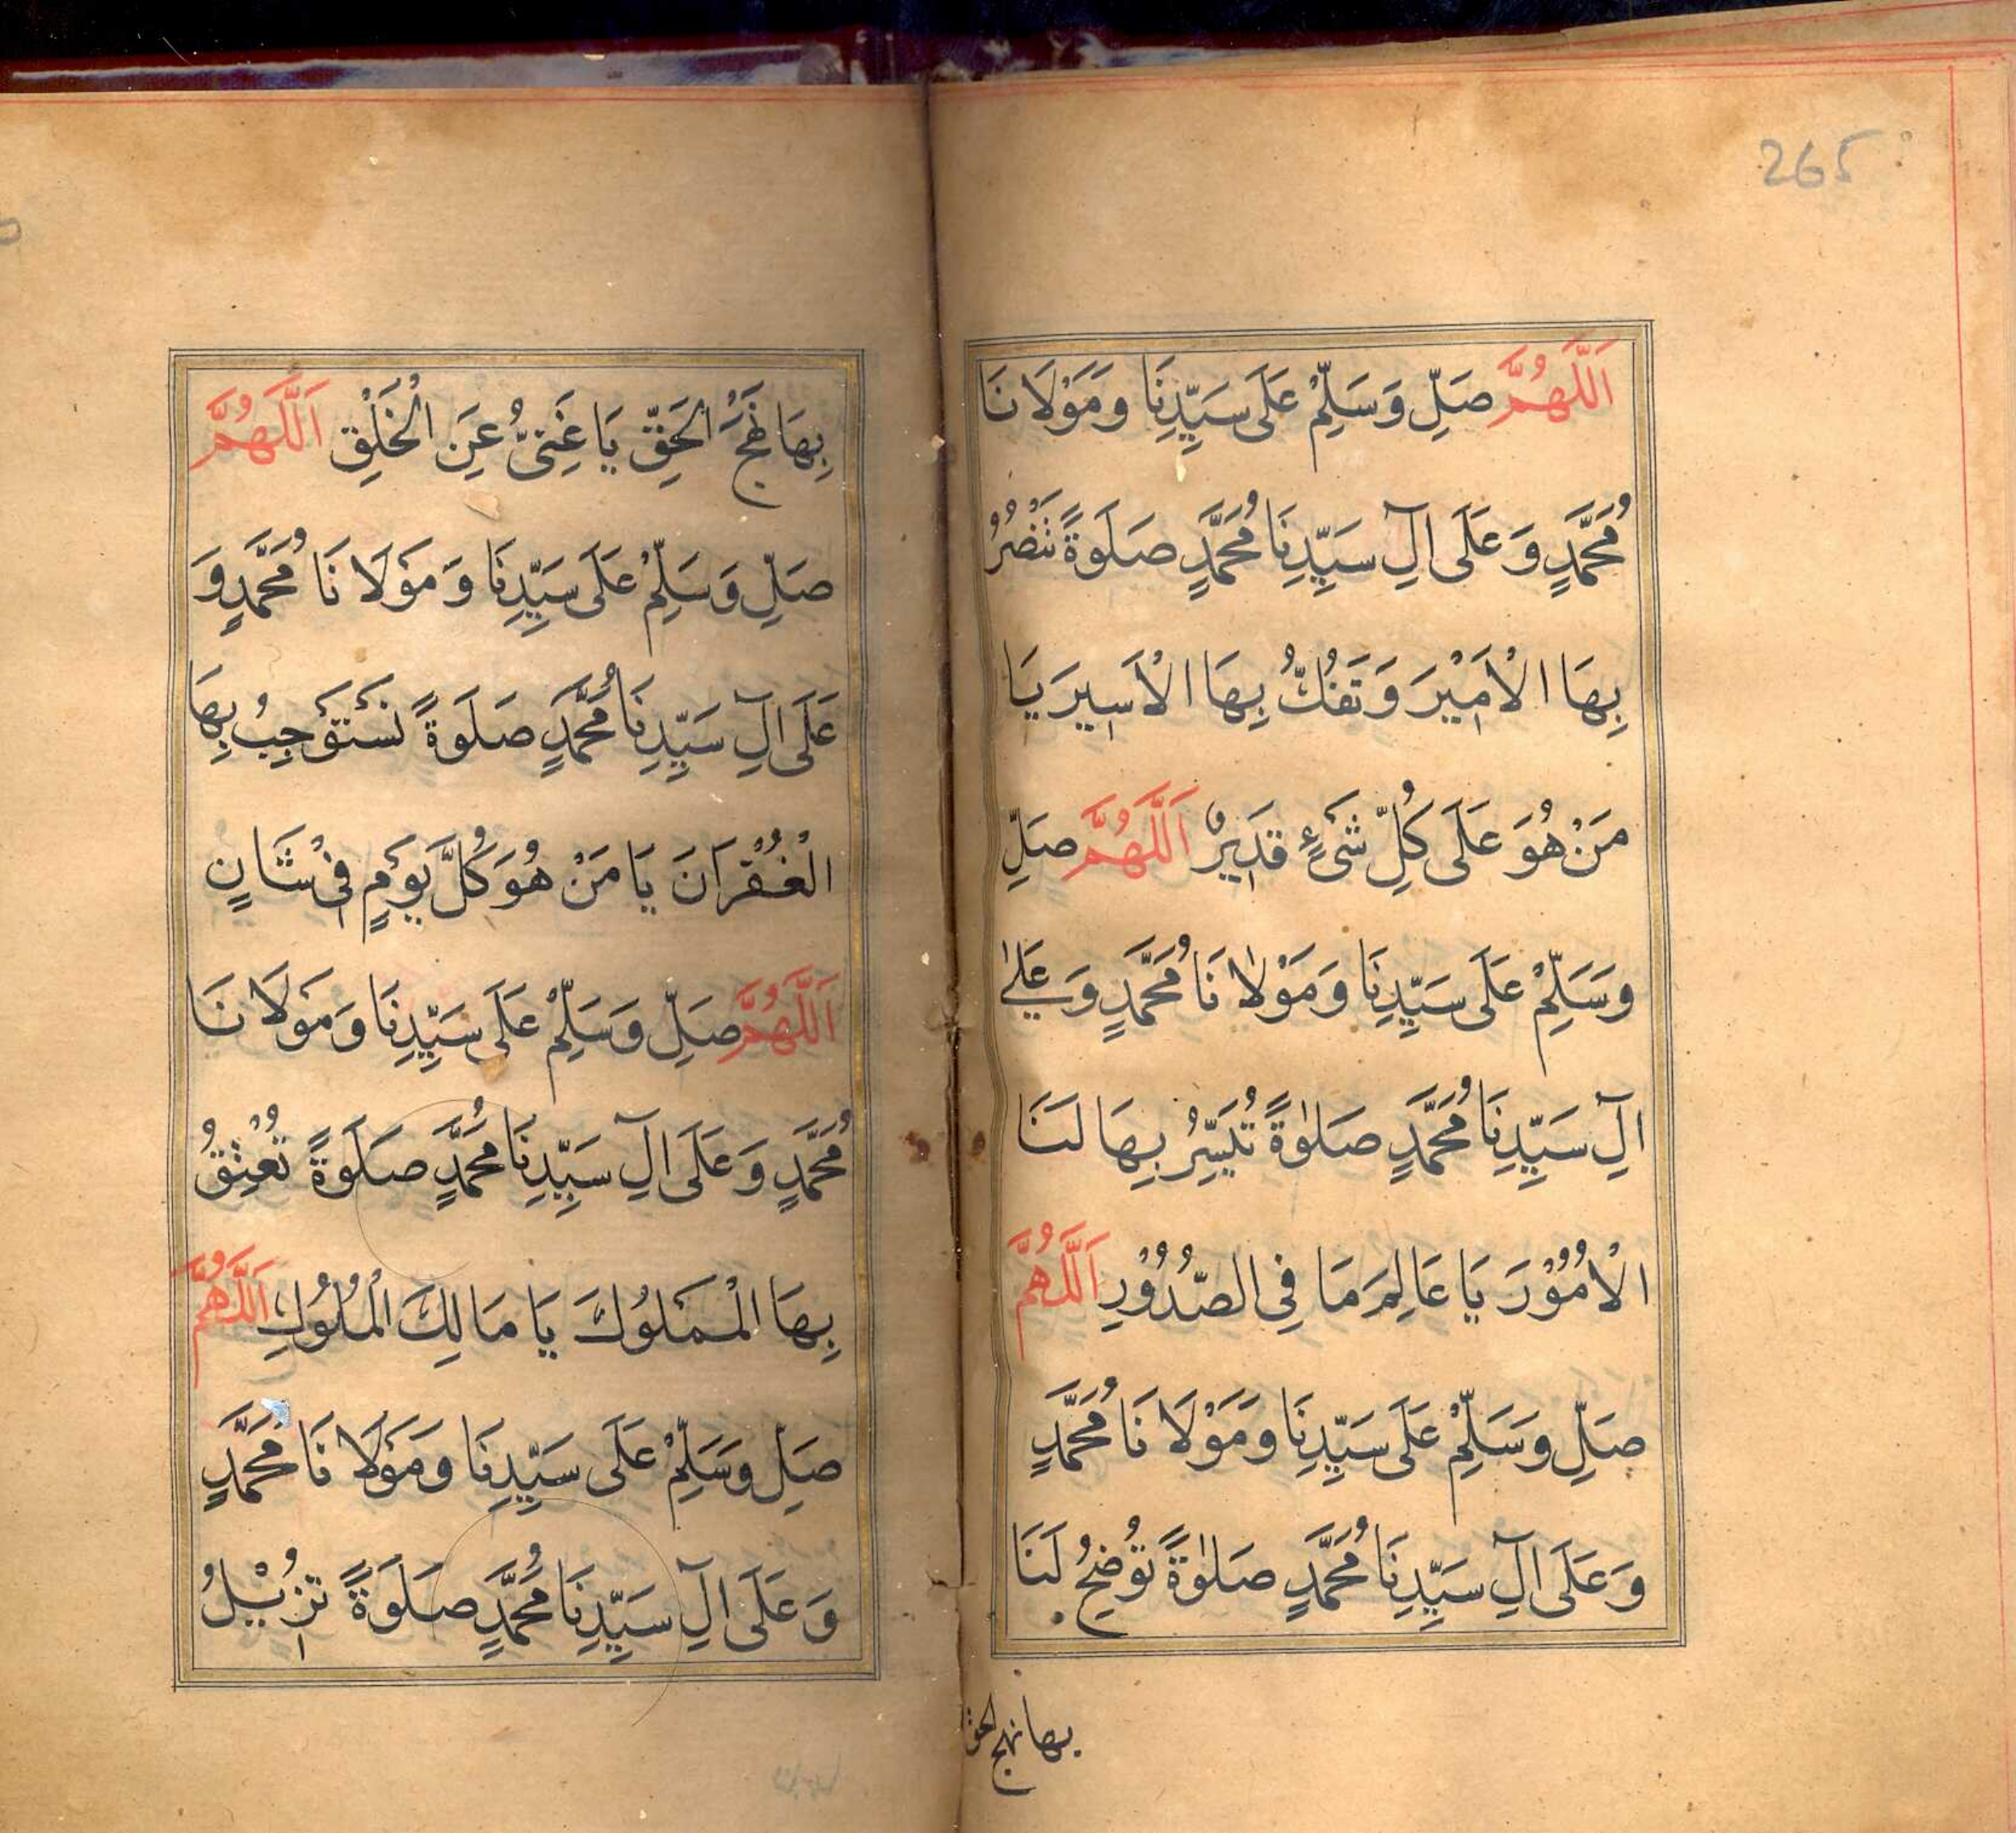 265
اَللّٰهُمَّ صَلِّ وَسَلِّمْ عَلَى سَيِّدِنَا وَمَوْلَانَا
مُحَمَّدٍ وَعَلَى اٰلِ سَيِّدِنَا مُحَمَّدٍ صَلَوةً تَنْصُرُ
بِهَا الْاَمِيْرَ وَتَفُكُّ بِهَا الْاَسِيرَ يَا
مَنْ هُوَ عَلَى كُلِّ شَىْءٍ قَدِيرٌ اَللّٰهُمَّ صَلِّ
وَسَلِّمْ عَلَى سَيِّدِنَا وَمَوْلٰانَا مُحَمَّدٍ وَعَلٰى
اٰلِ سَيِّدِنَا مُحَمَّدٍ صَلٰوةً تُيَسِّرُ بِهَا لَنَا
الْاُمُوْرَ يَا عَالِمَ مَا فِى الصُّدُوْرِ اَللّٰهُمَّ
صَلِّ وَسَلِّمْ عَلَى سَيِّدِنَا وَمَوْلَانَا مُحَمَّدٍ
وَعَلَى اٰلِ سَيِّدِنَا مُحَمَّدٍ صَلٰوةً تُوضِحُ لَنَا
بها نهج الحق
بِهَا نَهْجَ الْحَقِّ يَا غَنِىُّ عَنِ الْخَلْقِ اَللّٰهُمَّ
صَلِّ وَسَلِّمْ عَلَى سَيِّدِنَا وَمَوْلَانَا مُحَمَّدٍ وَ
عَلَى اٰلِ سَيِّدِنَا مُحَمَّدٍ صَلَوةً نَسْتَوْجِبُ بِهَا
الْغُفْرَانَ يَا مَنْ هُوَ كُلَّ يَوْمٍ فِىْ شَانٍ
اَللّٰهُمَّ صَلِّ وَسَلِّمْ عَلَى سَيِّدِنَا وَمَوْلَانَا
مُحَمَّدٍ وَعَلَى اٰلِ سَيِّدِنَا مُحَمَّدٍ صَلَوةً تُعْتِقُ
بِهَا الْمَمْلُوكَ يَا مَالِكَ الْمُلُوكِ اَللّٰهُمَّ
صَلِّ وَسَلِّمْ عَلَى سَيِّدِنَا وَمَوْلَانَا مُحَمَّدٍ
وَعَلَى اٰلِ سَيِّدِنَا مُحَمَّدٍ صَلَوةً تُزِيْلُ